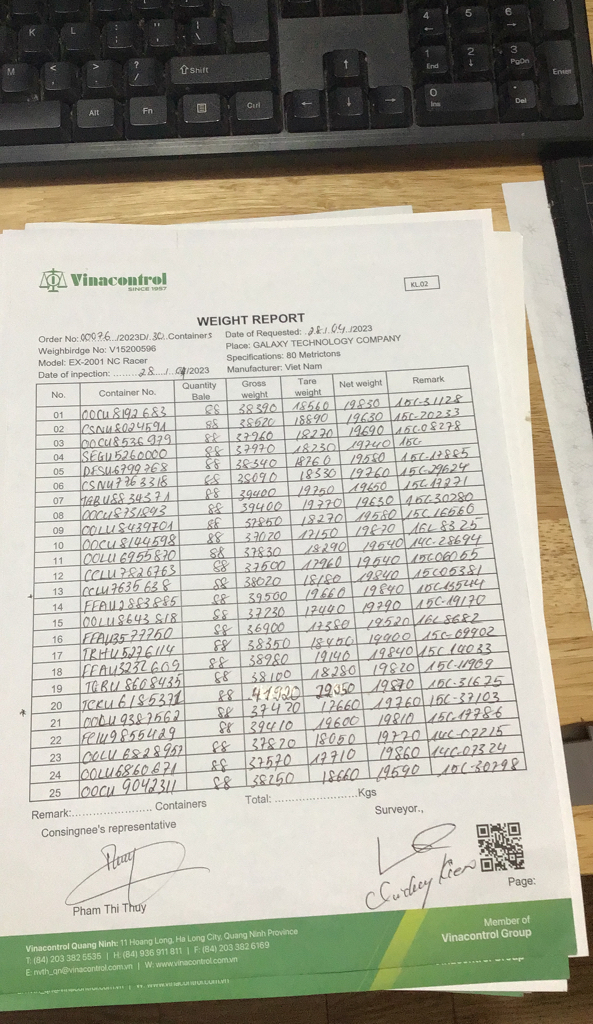 K L : ; " ' | \
M < , > . ? / ⇧Shift
Alt Fn Ctrl
4 ← 5 6 →
1 End 2 ↓ 3 PgDn
0 Ins . Del Enter
↑
← ↓ →
Vinacontrol
SINCE 1957
KL.02
WEIGHT REPORT
Order No: 00076 /2023D/ 30 Containers Date of Requested: 28/04/2023
Weighbirdge No: V15200596 Place: GALAXY TECHNOLOGY COMPANY
Model: EX-2001 NC Racer Specifications: 80 Metrictons
Date of inpection: ........28../..04/2023 Manufacturer: Viet Nam
No. Container No. Quantity Bale Gross weight Tare weight Net weight Remark
01 OOCU8192683 88 38390 18560 19830 15C-31128
02 CSNU8024591 88 38520 18890 19630 15C-20233
03 OOCU8536979 88 37960 18270 19690 15C-08278
04 SEGU5260000 88 37970 18230 19740 15C
05 DFSU6799768 88 38340 18760 19580 15C-17885
06 CSNU7763318 88 38090 18330 19760 15C-29624
07 88 39400 19750 19650 15C-17271
08 OOCU8731843 88 39400 19770 19630 15C-30280
09 OOLU8439701 88 37850 18270 19580 15C 16560
10 OOCU8144598 88 37020 17150 19870 16L 8325
11 OOLU6955870 88 37830 18290 19540 14C-28694
12 CCLU7826763 88 37500 17960 19540 15C06055
13 CCLU7635638 88 38020 18180 19840 15C05381
14 FFAU2883885 88 39500 19660 19840 15C-15544
15 OOLU8643818 88 37230 17440 19790 15C-19170
16 FFAU3577750 88 36900 17380 19520 16L 8682
17 TRHU5276114 88 38350 18450 19900 15C-09902
18 FFAU3232609 88 38980 19140 19840 15C 14033
19 TGBU8608435 88 38100 18280 19820 15C-11909
20 TCKU6185371 88 41920 22050 19870 15C-31675
21 OOLU9387562 88 37420 17660 19760 15C-37103
22 FCIU9855429 88 39410 19600 19810 15C17786
23 OOLU6828957 88 37820 18050 19770 14C-07215
24 OOLU6860671 88 37570 17710 19860 14C-07324
25 OOCU9042311 88 38250 18660 19590 15C-30798
Remark:..................... Containers Total: .....................Kgs
Consingnee's representative Surveyor.,
Thuy
Pham Thi Thuy
Page:
Vinacontrol Quang Ninh: 11 Hoang Long, Ha Long City, Quang Ninh Province
T: (84) 203 382 5535 | H: (84) 936 911 811 | F: (84) 203 382 6169
E: nvth_qn@vinacontrol.com.vn | W: www.vinacontrol.com.vn
Member of
Vinacontrol Group